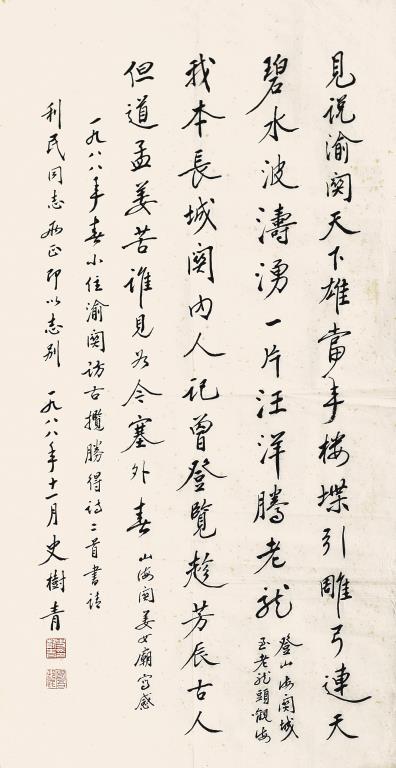 见说渝関天下雄當年楼堞引雕弓連天
碧水波濤湧一片汪洋騰老龙
登山海関城
至老龙頭觀海
我本長城関内人记曾登覽趁芳辰古人
但道孟姜苦谁见如今塞外春
山海関姜女廟写感
一九八八年春小住渝関访古攬勝得诗二首書请
利民同志两正即以志别 一九八八年十一月 史樹青